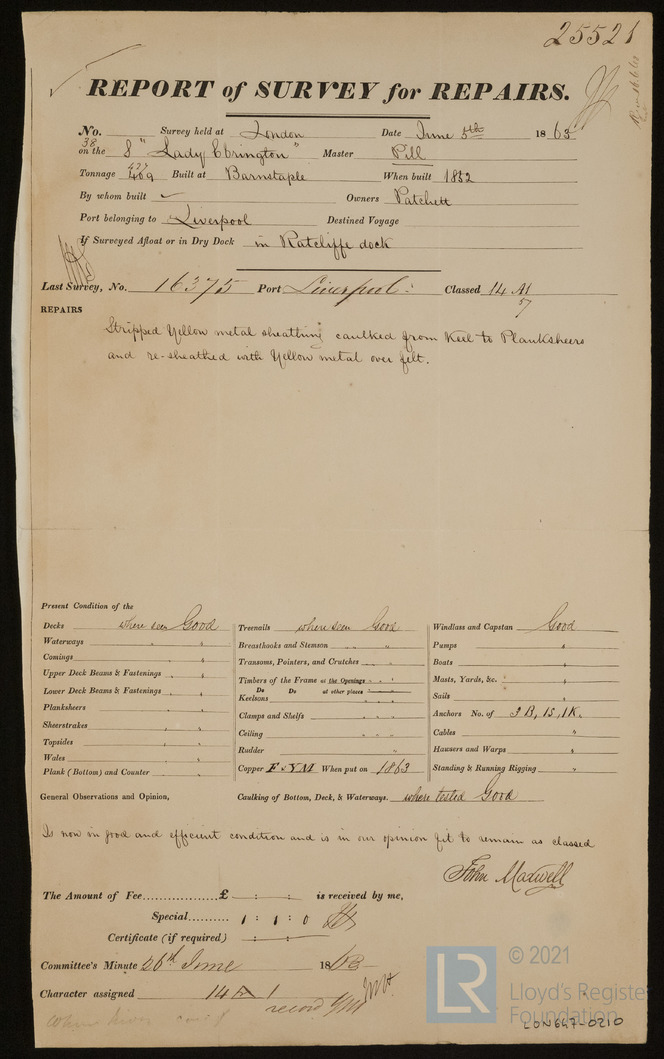 25521
REPORT of SURVEY for REPAIRS.
No. Survey held at London Date June 5th 1863
38
on the S "Lady Ebrington" Master Pill
427
Tonnage 469 Built at Barnstaple When built 1852
By whom built Owners Patchett
Port belonging to Liverpool Destined Voyage
If Surveyed Afloat or in Dry Dock in Ratcliffe dock
Last Survey, No. 16375 Port Liverpool Classed 14 A1
57
REPAIRS
Stripped Yellow metal sheathing caulked from Keel to Planksheers
and re-sheathed with Yellow metal over felt.
Present Condition of the
Decks where seen Good Treenails where seen Good Windlass and Capstan Good
Waterways " " Breasthooks and Stemson " " Pumps "
Comings " " Transoms, Pointers, and Crutches " " Boats "
Upper Deck Beams & Fastenings " " Timbers of the Frame at the Openings " " Masts, Yards, &c. "
Do Do at other places
Lower Deck Beams & Fastenings " " Keelsons Sails "
Planksheers " " Clamps and Shelfs " " Anchors No. of 3 B, 1S, 1K.
Sheerstrakes " " Ceiling " " Cables "
Topsides " " Rudder " Hawsers and Warps "
Wales " "
Plank (Bottom) and Counter " " Copper F & YM When put on 1863 Standing & Running Rigging "
General Observations and Opinion, Caulking of Bottom, Deck, & Waterways. where tested Good
Is now in good and efficient condition and is in our opinion fit to remain as classed
John Maxwell
The Amount of Fee £ : : is received by me,
Special 1 : 1 : 0
Certificate (if required) : :
Committee's Minute 26th June 1863
Character assigned 14 A 1
record YM
© 2021
LR
Lloyd's Register
Foundation
LON647-0210